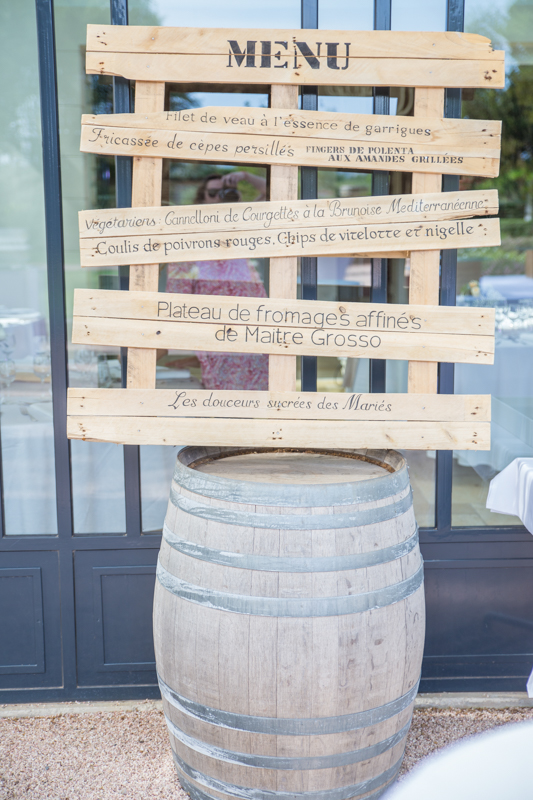 MENU
Filet de veau à l'essence de garrigues
Fricassée de cèpes persillés FINGERS DE POLENTA
AUX AMANDES GRILLÉES
Végétariens: Cannelloni de Courgettes à la Brunoise Mediterranéenne,
Coulis de poivrons rouges. Chips de vitelotte et nigelle
Plateau de fromages affinés
de Maitre Grosso
Les douceurs sucrées des Mariés